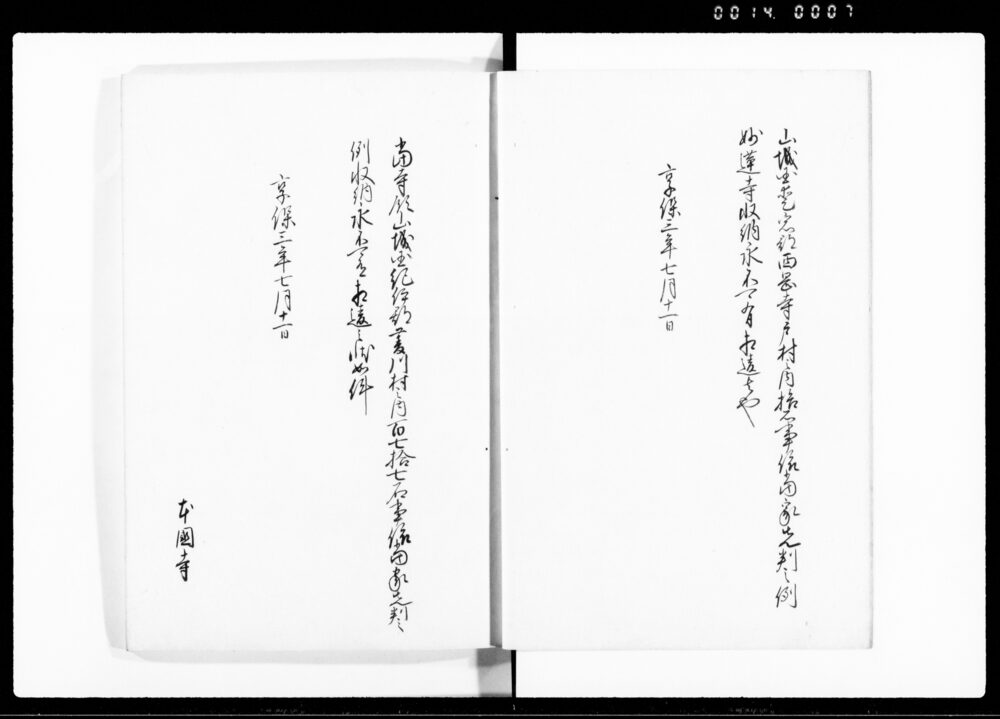 0014 0007
山城国乙訓郡西岡寺戸村之内拾石事依当家先判之例
妙蓮寺収納永不可有相違者也
享保三年七月十一日
当寺領山城国紀伊郡 川村之内百七拾七石事依当家先判之
例収納永不可有相違之状如件
享保三年七月十一日
本國寺